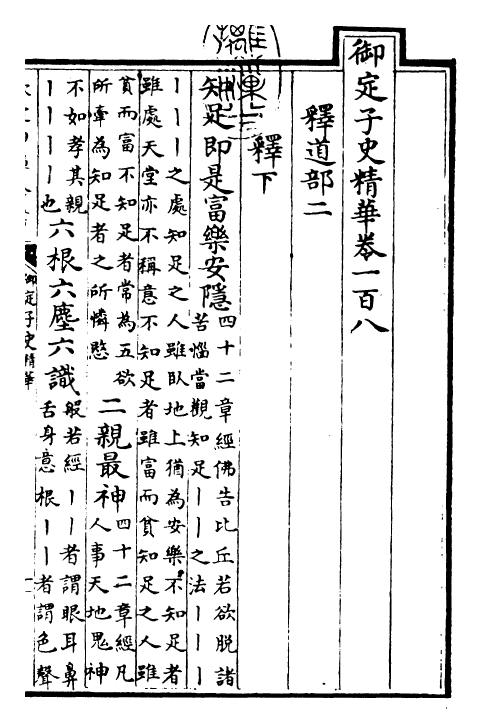 御定子史精華卷一百八
釋道部二
釋下
知足即是富樂安隱
四十二章經佛告比丘若欲脫諸
苦惱當觀知足丨丨之法丨丨丨
丨丨丨之處知足之人雖臥地上猶為安樂不知足者
雖處天堂亦不稱意不知足者雖富而貧知足之人雖
貧而富不知足者常為五欲
所牽為知足者之所憐愍
二親最神
四十二章經凡
人事天地鬼神
不如孝其親
丨丨丨丨也
六根六塵六識
般若經丨丨者謂眼耳鼻
舌身意根丨丨者謂色聲
御定子史精華